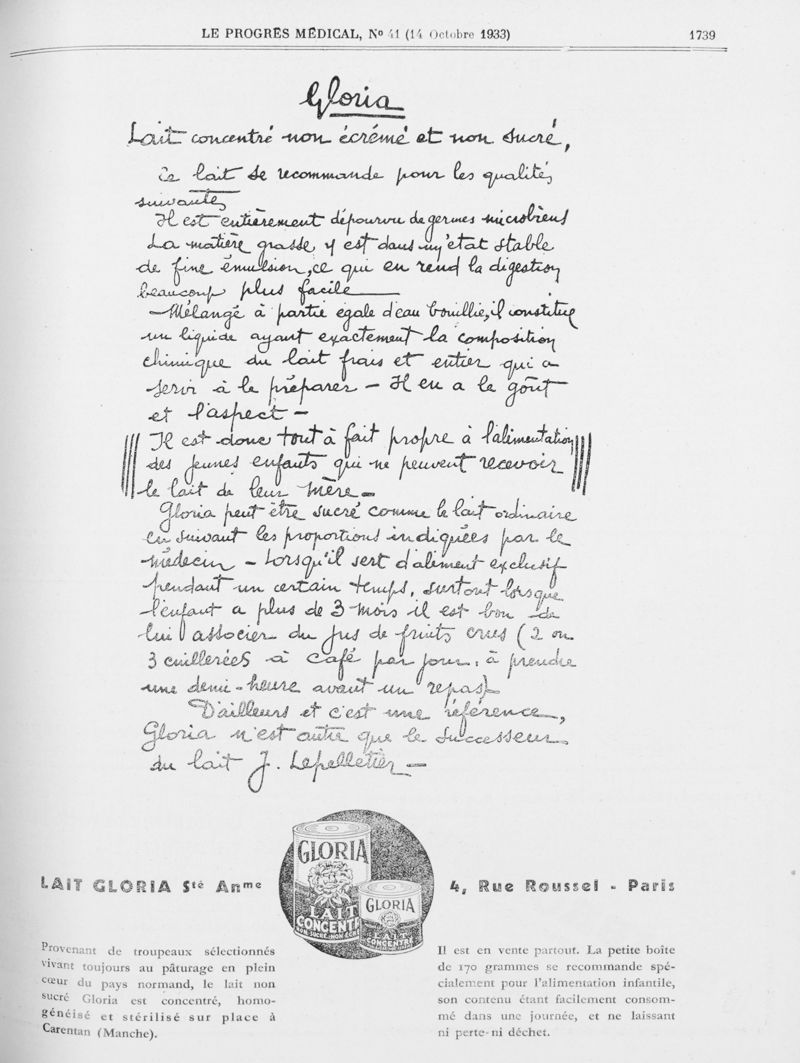 LE PROGRÈS MÉDICAL, N° 41 (14 Octobre 1933) 1739
Gloria
Lait concentré non écrémé et non sucré,
Ce lait se recommande pour les qualités
suivantes
Il est entièrement dépourvu de germes microbiens
La matière grasse y est dans un état stable
de fine émulsion, ce qui en rend la digestion
beaucoup plus facile
— Mélangé à partie égale d'eau bouillie, il constitue
un liquide ayant exactement la composition
chimique du lait frais et entier qui a
servi à le préparer — Il en a le goût
et l'aspect —
Il est donc tout à fait propre à l'alimentation
des jeunes enfants qui ne peuvent recevoir
le lait de leur mère —
Gloria peut être sucré comme le lait ordinaire
en suivant les proportions indiquées par le
médecin — Lorsqu'il sert d'aliment exclusif
pendant un certain temps, surtout lorsque
l'enfant a plus de 3 mois il est bon de
lui associer du jus de fruits crus (2 ou
3 cuillerées à café par jour, à prendre
une demi-heure avant un repas)
D'ailleurs et c'est une référence,
Gloria n'est autre que le successeur
du lait J. Lepelletier —
GLORIA
LAIT
CONCENTRÉ
NON SUCRÉ NON ÉCRÉMÉ
GLORIA
LAIT
CONCENTRÉ
LAIT GLORIA Sté Anme
4, Rue Roussel - Paris
Provenant de troupeaux sélectionnés
vivant toujours au pâturage en plein
cœur du pays normand, le lait non
sucré Gloria est concentré, homo-
généisé et stérilisé sur place à
Carentan (Manche).
Il est en vente partout. La petite boîte
de 170 grammes se recommande spé-
cialement pour l'alimentation infantile,
son contenu étant facilement consom-
mé dans une journée, et ne laissant
ni perte ni déchet.